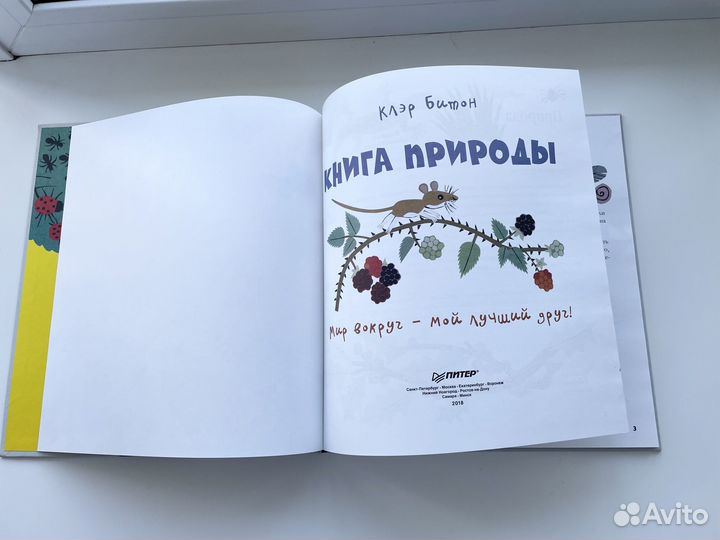 Клэр Битон
КНИГА ПРИРОДЫ
Мир вокруг – мой лучший друг!
ПИТЕР®
Санкт-Петербург • Москва • Екатеринбург • Воронеж
Нижний Новгород • Ростов-на-Дону
Самара • Минск
2018
3
Avito